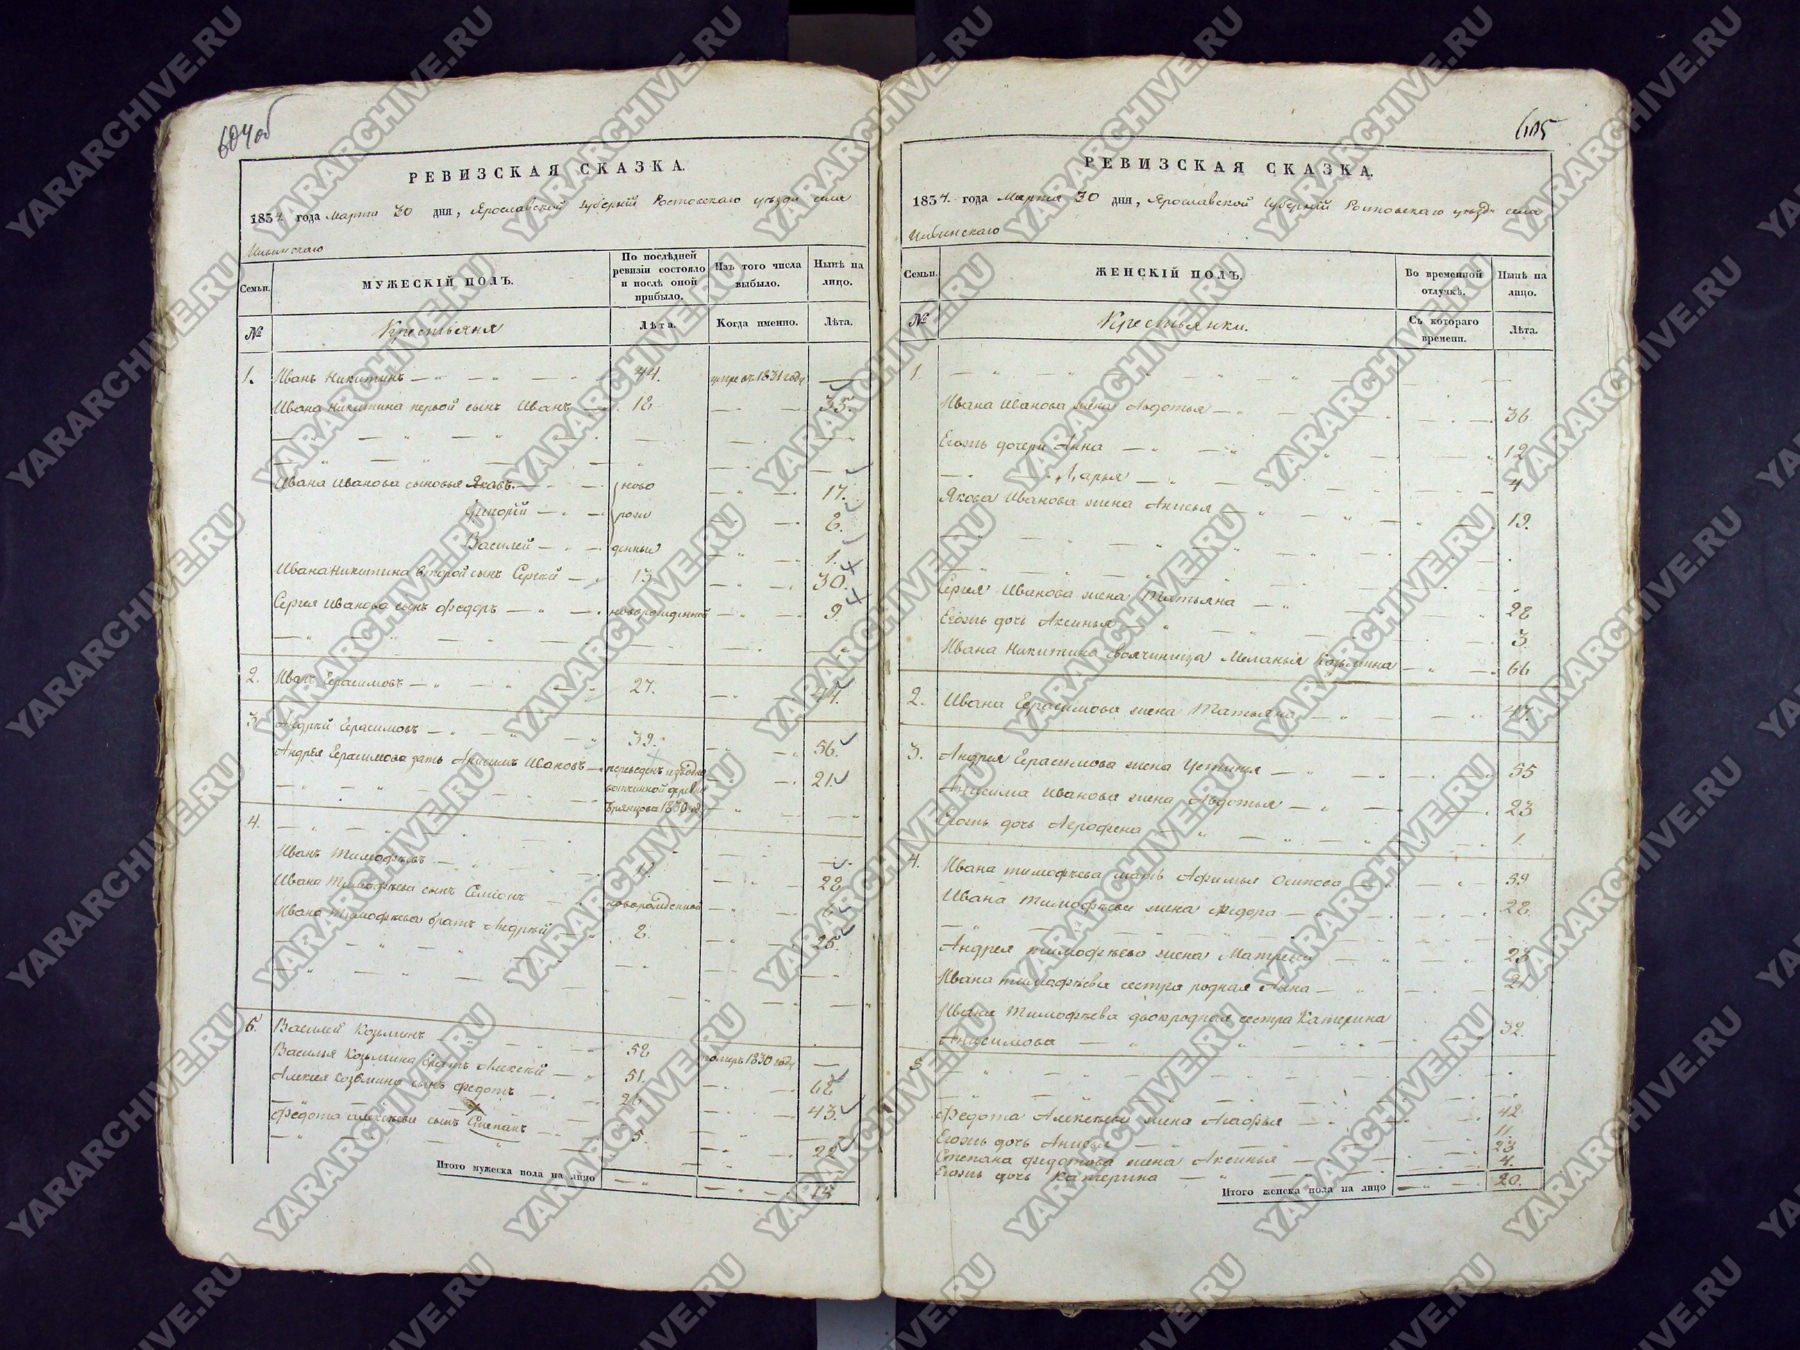 604об
РЕВИЗСКАЯ СКАЗКА.
1834. года Марта 30 дня, Ярославской Губерній Ростовскаго уѣзда села
Ильинскаго
Семьи.
МУЖЕСКІЙ ПОЛЪ.
По послѣдней ревизіи состояло и послѣ оной прибыло.
Изъ того числа выбыло.
Нынѣ на лицо.
№
Крестьяня
Лѣта.
Когда именно.
Лѣта.
1. Иванъ Никитинъ — 44. умре въ 1831 году —
Ивана Никитина первой сынъ Иванъ — 18 — 35.
Ивана Иванова сыновья Яковъ — ново — 17.
Григорій — рож —
Василей — денныя — 1.
Ивана Никитина второй сынъ Сергѣй — 13 — 30.
Сергея Иванова сынъ Федоръ — новорожденной — 9.
2. Иванъ Герасимовъ — 27. — 44.
3. Андрѣй Герасимовъ — 39. — 56.
Андрѣя Герасимова зять Анисимъ Ивановъ — переведенъ изъ — 21.
вотчинной деревни
1830
4.
Иванъ Тимофѣевъ —
Ивана Тимофѣева сынъ Семіонъ — новорожденной
Ивана Тимофѣева братъ Андрѣй — 25
5. Василей Козьминъ — 52 померъ 1830 году —
Василья Козьмина братъ Алексѣй — 51.
Алексея Козьмина сынъ Федотъ — 26 — 43.
Федота Алексѣева сынъ Степанъ — 5. — 22
Итого мужеска пола на лицо — 15
605
РЕВИЗСКАЯ СКАЗКА.
1834. года Марта 30 дня, Ярославской Губерній Ростовскаго уѣзда села
Ильинскаго
Семьи.
ЖЕНСКІЙ ПОЛЪ.
Во временной отлучкѣ.
Нынѣ на лицо.
№
Крестьянки.
Съ котораго времени.
Лѣта.
1.
Ивана Иванова жена Авдотья — 36
Егожъ дочери Анна — 12
Дарья — 4
Якова Иванова жена Анисья — 19.
Сергея Иванова жена Татьяна — 28
Егожъ дочь Аксинья — 3
Ивана Никитина своячиница Меланья Козьмина — 66
2. Ивана Герасимова жена Татьяна — 47.
3. Андрея Герасимова жена Устинья — 55
Анисима Иванова жена Авдотья — 23
Егожъ дочь Агрофена — 1.
4. Ивана Тимофѣева мать Афимья Осипова — 59
Ивана Тимофѣева жена Федора — 28.
Андрея Тимофѣева жена Матрена — 23
Ивана Тимофѣева сестра родная Анна — 21
Ивана Тимофѣева двоюродная сестра Катерина
Анисимова — 32.
5
Федота Алексѣева жена Агафья — 42
Егожъ дочь Анисья — 11.
Степана Федотова жена Аксинья — 23
Егожъ дочь Катерина — 4.
Итого женска пола на лицо — 20.
YARARCHIVE.RU